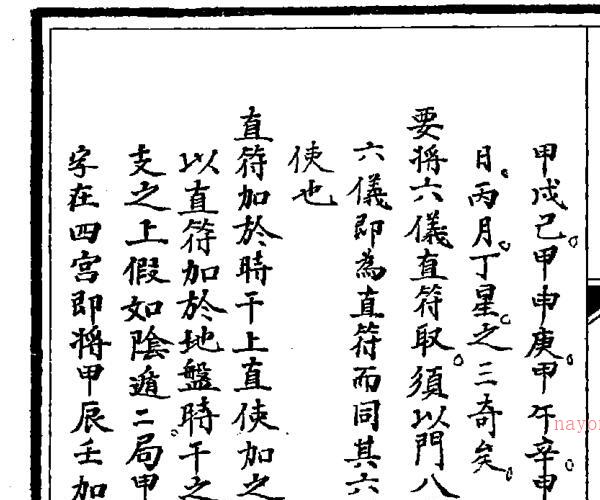 甲戍己。甲申庚。甲午辛。甲
日。丙月。丁星。之三奇矣。
要将六儀直符取。須以門八
六儀即為直符而同其六
使也
直符加於時干上直使加之
以直符加於地盤時干之
支之上假如陰遁二局甲
字在四宫即将甲辰壬加
nayo